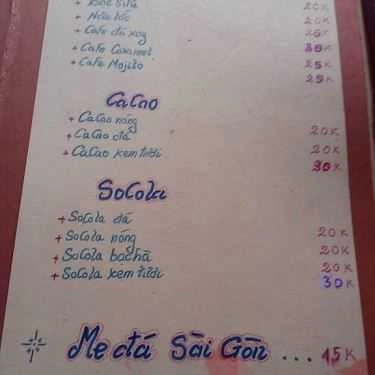 + Bạc sỉu 20K
+ Nâu lắc 20K
+ Cafe đá xay 25K
+ Cafe Caramel 30K
+ Cafe Mojito 25K
25K
CaCao
+ CaCao nóng 20K
+ CaCao đá 20K
+ CaCao kem tươi 30K
SoCola
+ SoCola đá 20K
+ SoCola nóng 20K
+ SoCola bạc hà 20K
+ SoCola kem tươi 30K
Me đá Sài Gòn ... 15K